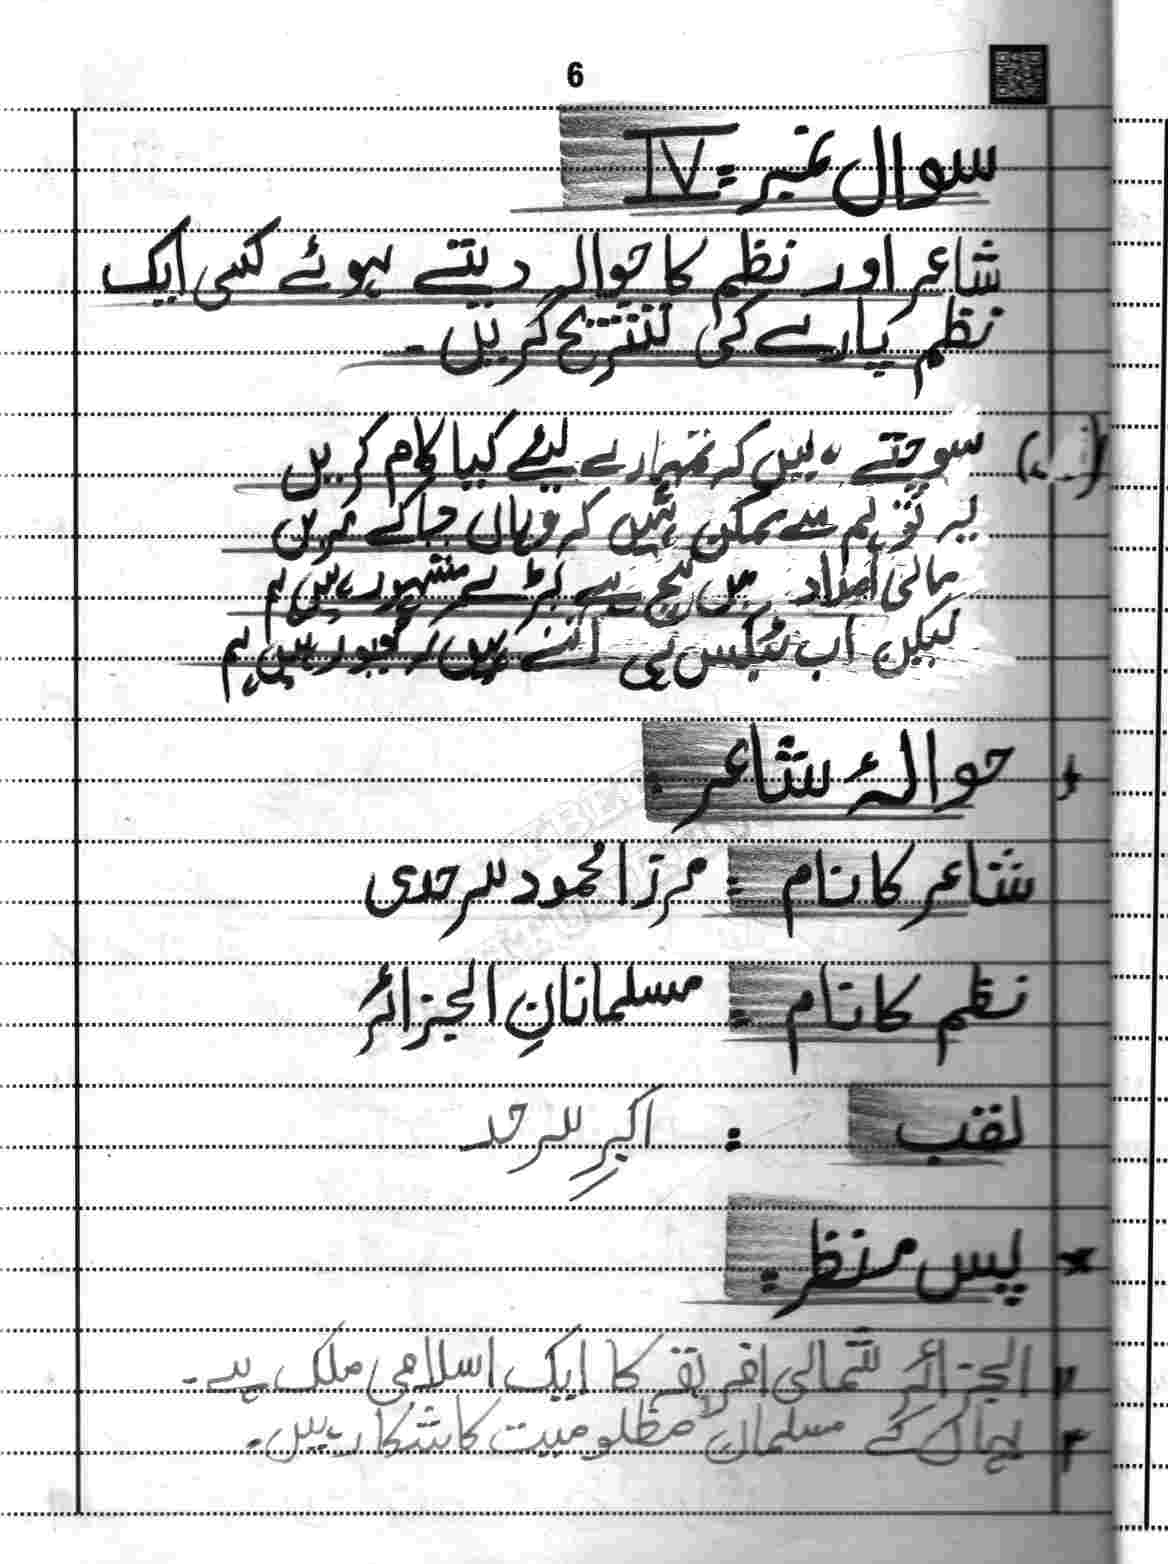 6
سوال نمبر: IV
شاعر اور نظم کا حوالہ دیتے ہوئے کسی ایک
نظم پارے کی تشریح کریں۔
سوچتے ہیں کہ تمہارے لیئے کیا کام کریں
یہ تو ہم سے ممکن نہیں کہ وہاں جا کے مریں
مالی امداد میں کے مشہور ہیں ہم
لیکن اب ٹیکس ہی اتنے ہیں کہ مجبور ہیں ہم
حوالۂ شاعر:
شاعر کا نام : مرزا محمود سرحدی
نظم کا نام : مسلمانانِ الجزائر
لقب : اکبرِ سرحد
پس منظر:
الجزائر شمالی افریقہ کا ایک اسلامی ملک ہے۔
یہاں کے مسلمان مظلومیت کا شکار ہیں۔